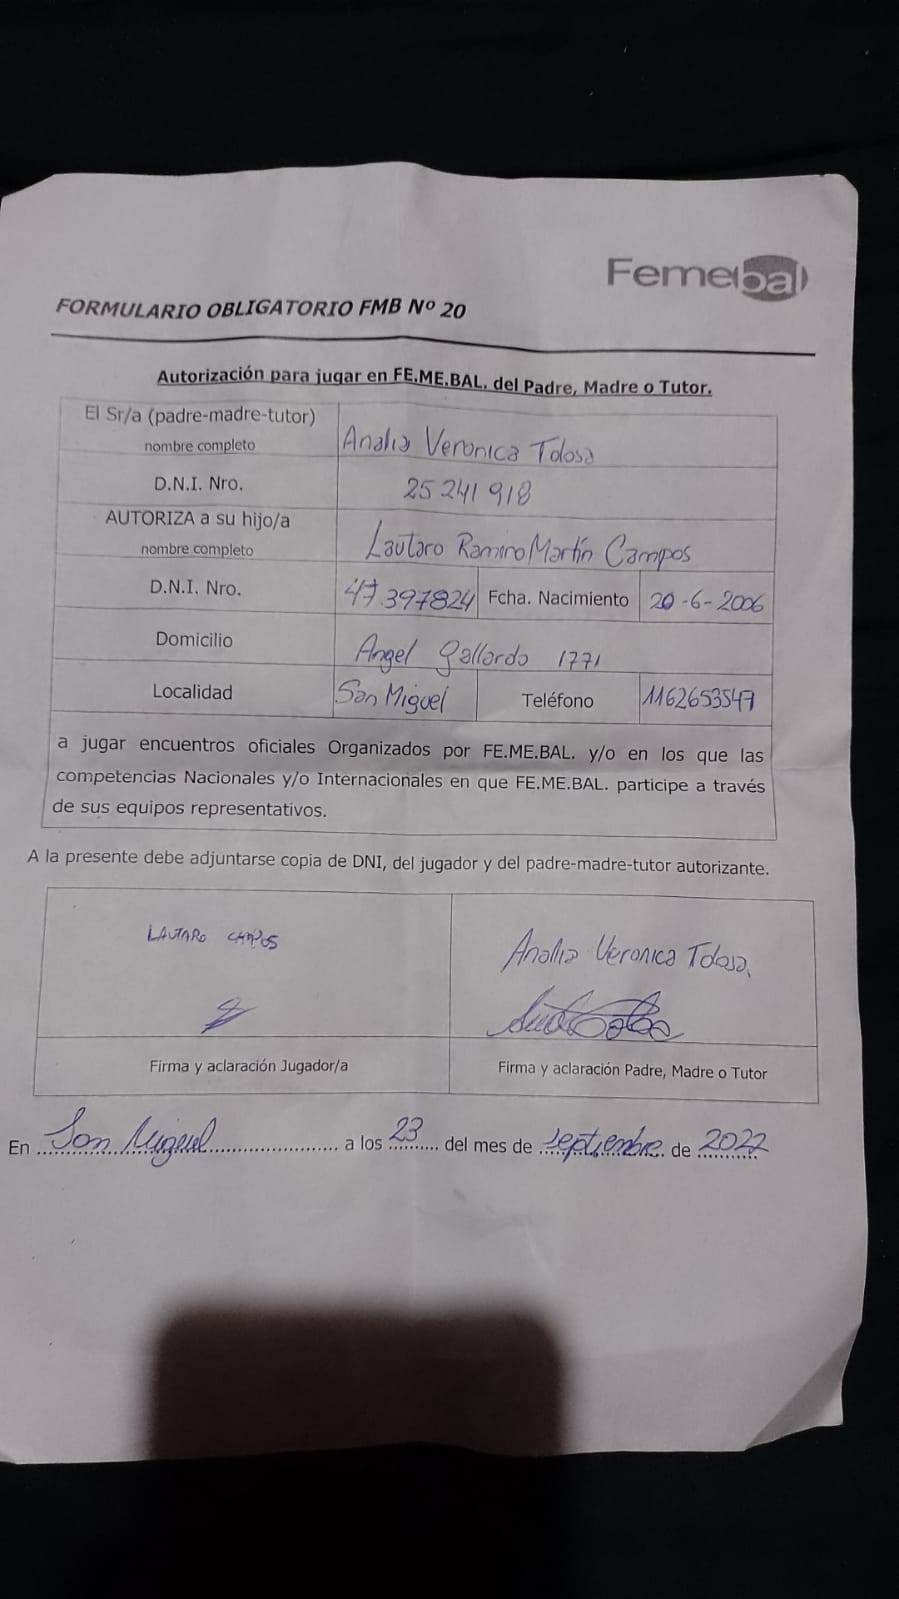 Femebal
FORMULARIO OBLIGATORIO FMB Nº 20
Autorización para jugar en FE.ME.BAL. del Padre, Madre o Tutor.
El Sr/a (padre-madre-tutor)
nombre completo
Analia Veronica Tolosa
D.N.I. Nro.
25 241 918
AUTORIZA a su hijo/a
nombre completo
Lautaro Ramiro Martín Campos
D.N.I. Nro.
47.397824
Fcha. Nacimiento
20-6-2006
Domicilio
Angel gallardo 1771
Localidad
San Miguel
Teléfono
1162653547
a jugar encuentros oficiales Organizados por FE.ME.BAL. y/o en los que las
competencias Nacionales y/o Internacionales en que FE.ME.BAL. participe a través
de sus equipos representativos.
A la presente debe adjuntarse copia de DNI, del jugador y del padre-madre-tutor autorizante.
LAUTARO CAMPOS
Analia Veronica Tolosa.
Firma y aclaración Jugador/a
Firma y aclaración Padre, Madre o Tutor
En San Miguel a los 23 del mes de septiembre de 2022